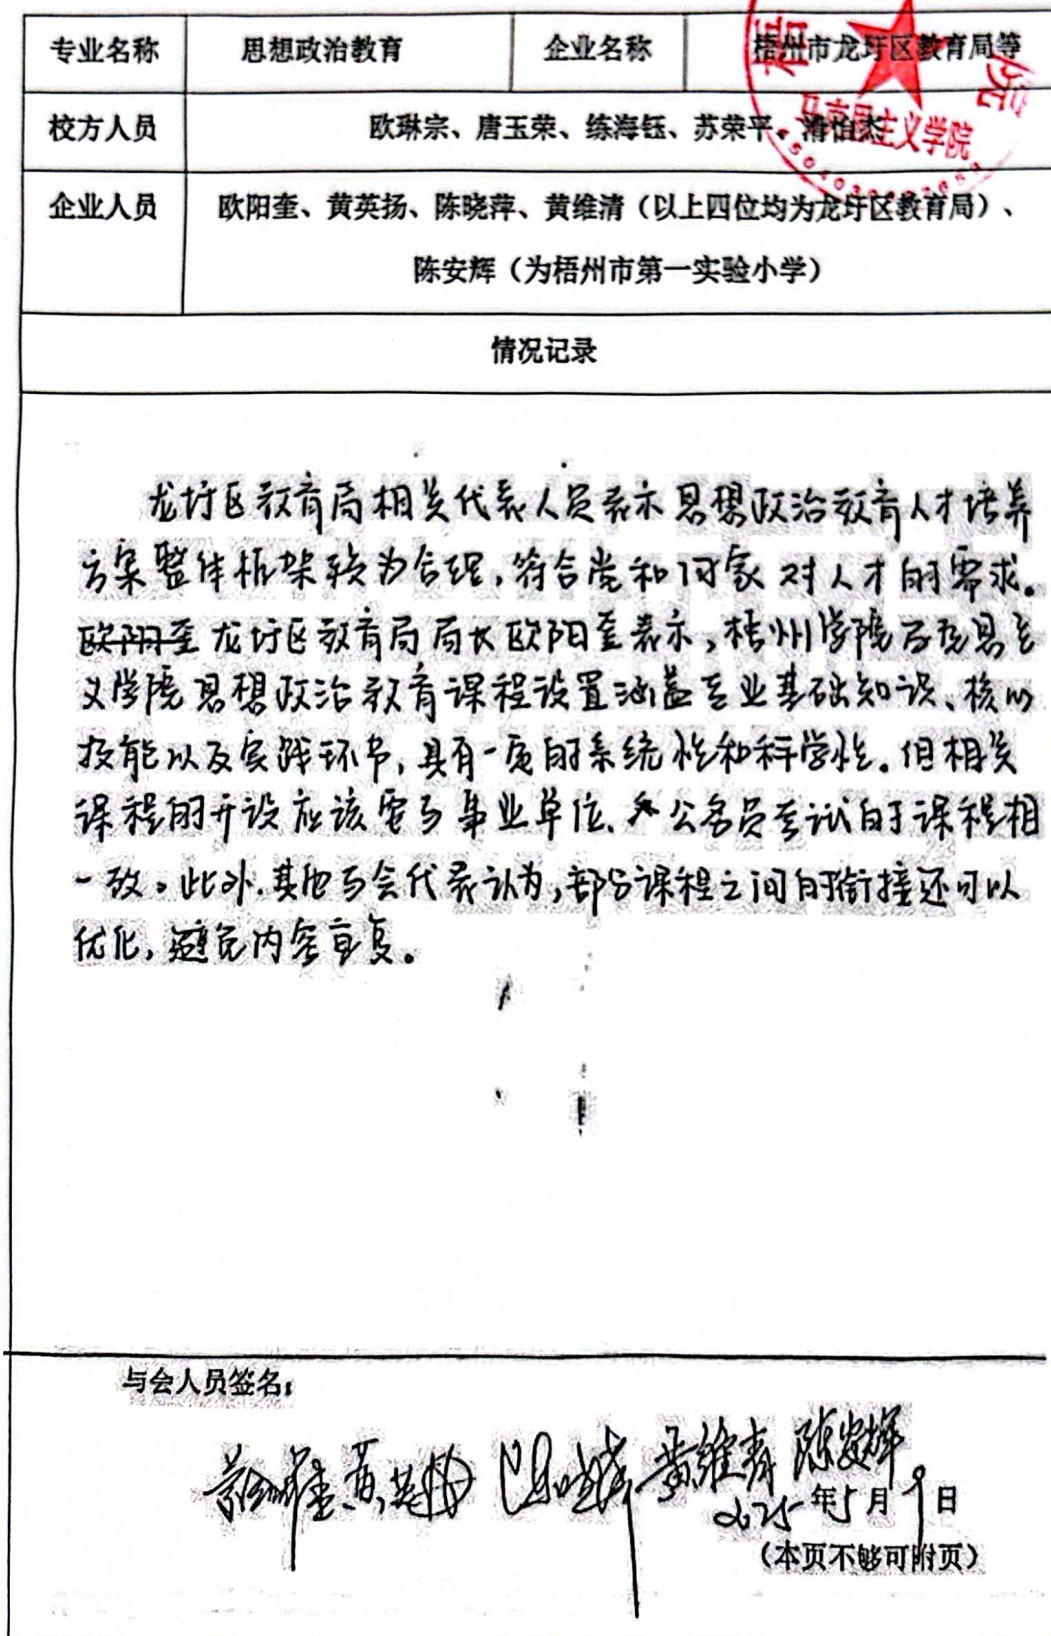 专业名称 思想政治教育 企业名称 梧州市龙圩区教育局等
校方人员 欧琳宗、唐玉荣、练海钰、苏荣平、
马克思主义学院
企业人员 欧阳奎、黄英扬、陈晓萍、黄维清（以上四位均为龙圩区教育局）、
陈安辉（为梧州市第一实验小学）
情况记录
龙圩区教育局相关代表人员表示思想政治教育人才培养
方案整体框架较为合理，符合党和国家对人才的需求。
欧阳奎龙圩区教育局局长欧阳奎表示，梧州学院马克思主
义学院思想政治教育课程设置涵盖专业基础知识、核心
技能以及实践环节，具有一定的系统性和科学性。但相关
课程的开设应该要与事业单位、公务员考试的课程相
一致。此外，其他与会代表认为，部分课程之间的衔接还可以
优化，避免内容重复。
与会人员签名：
黄维清 陈安辉
2025年5月9日
（本页不够可附页）